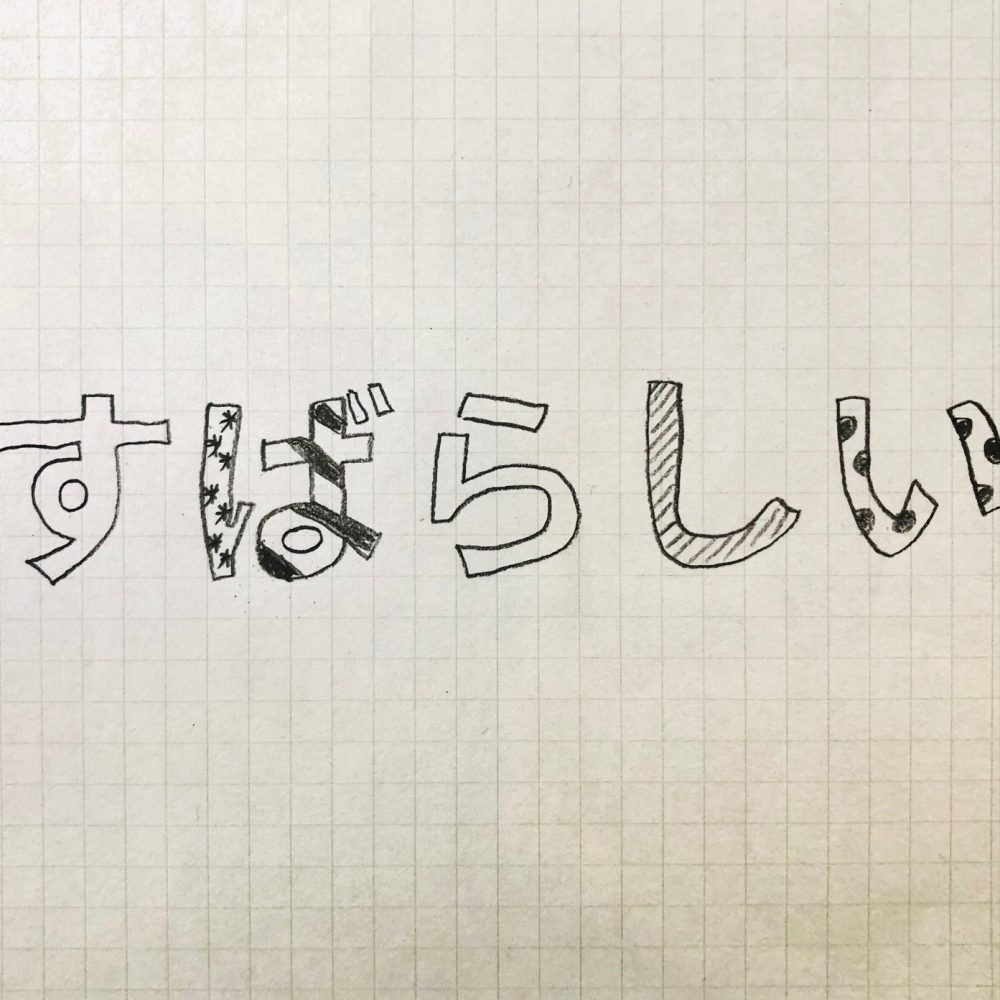 すばらしい